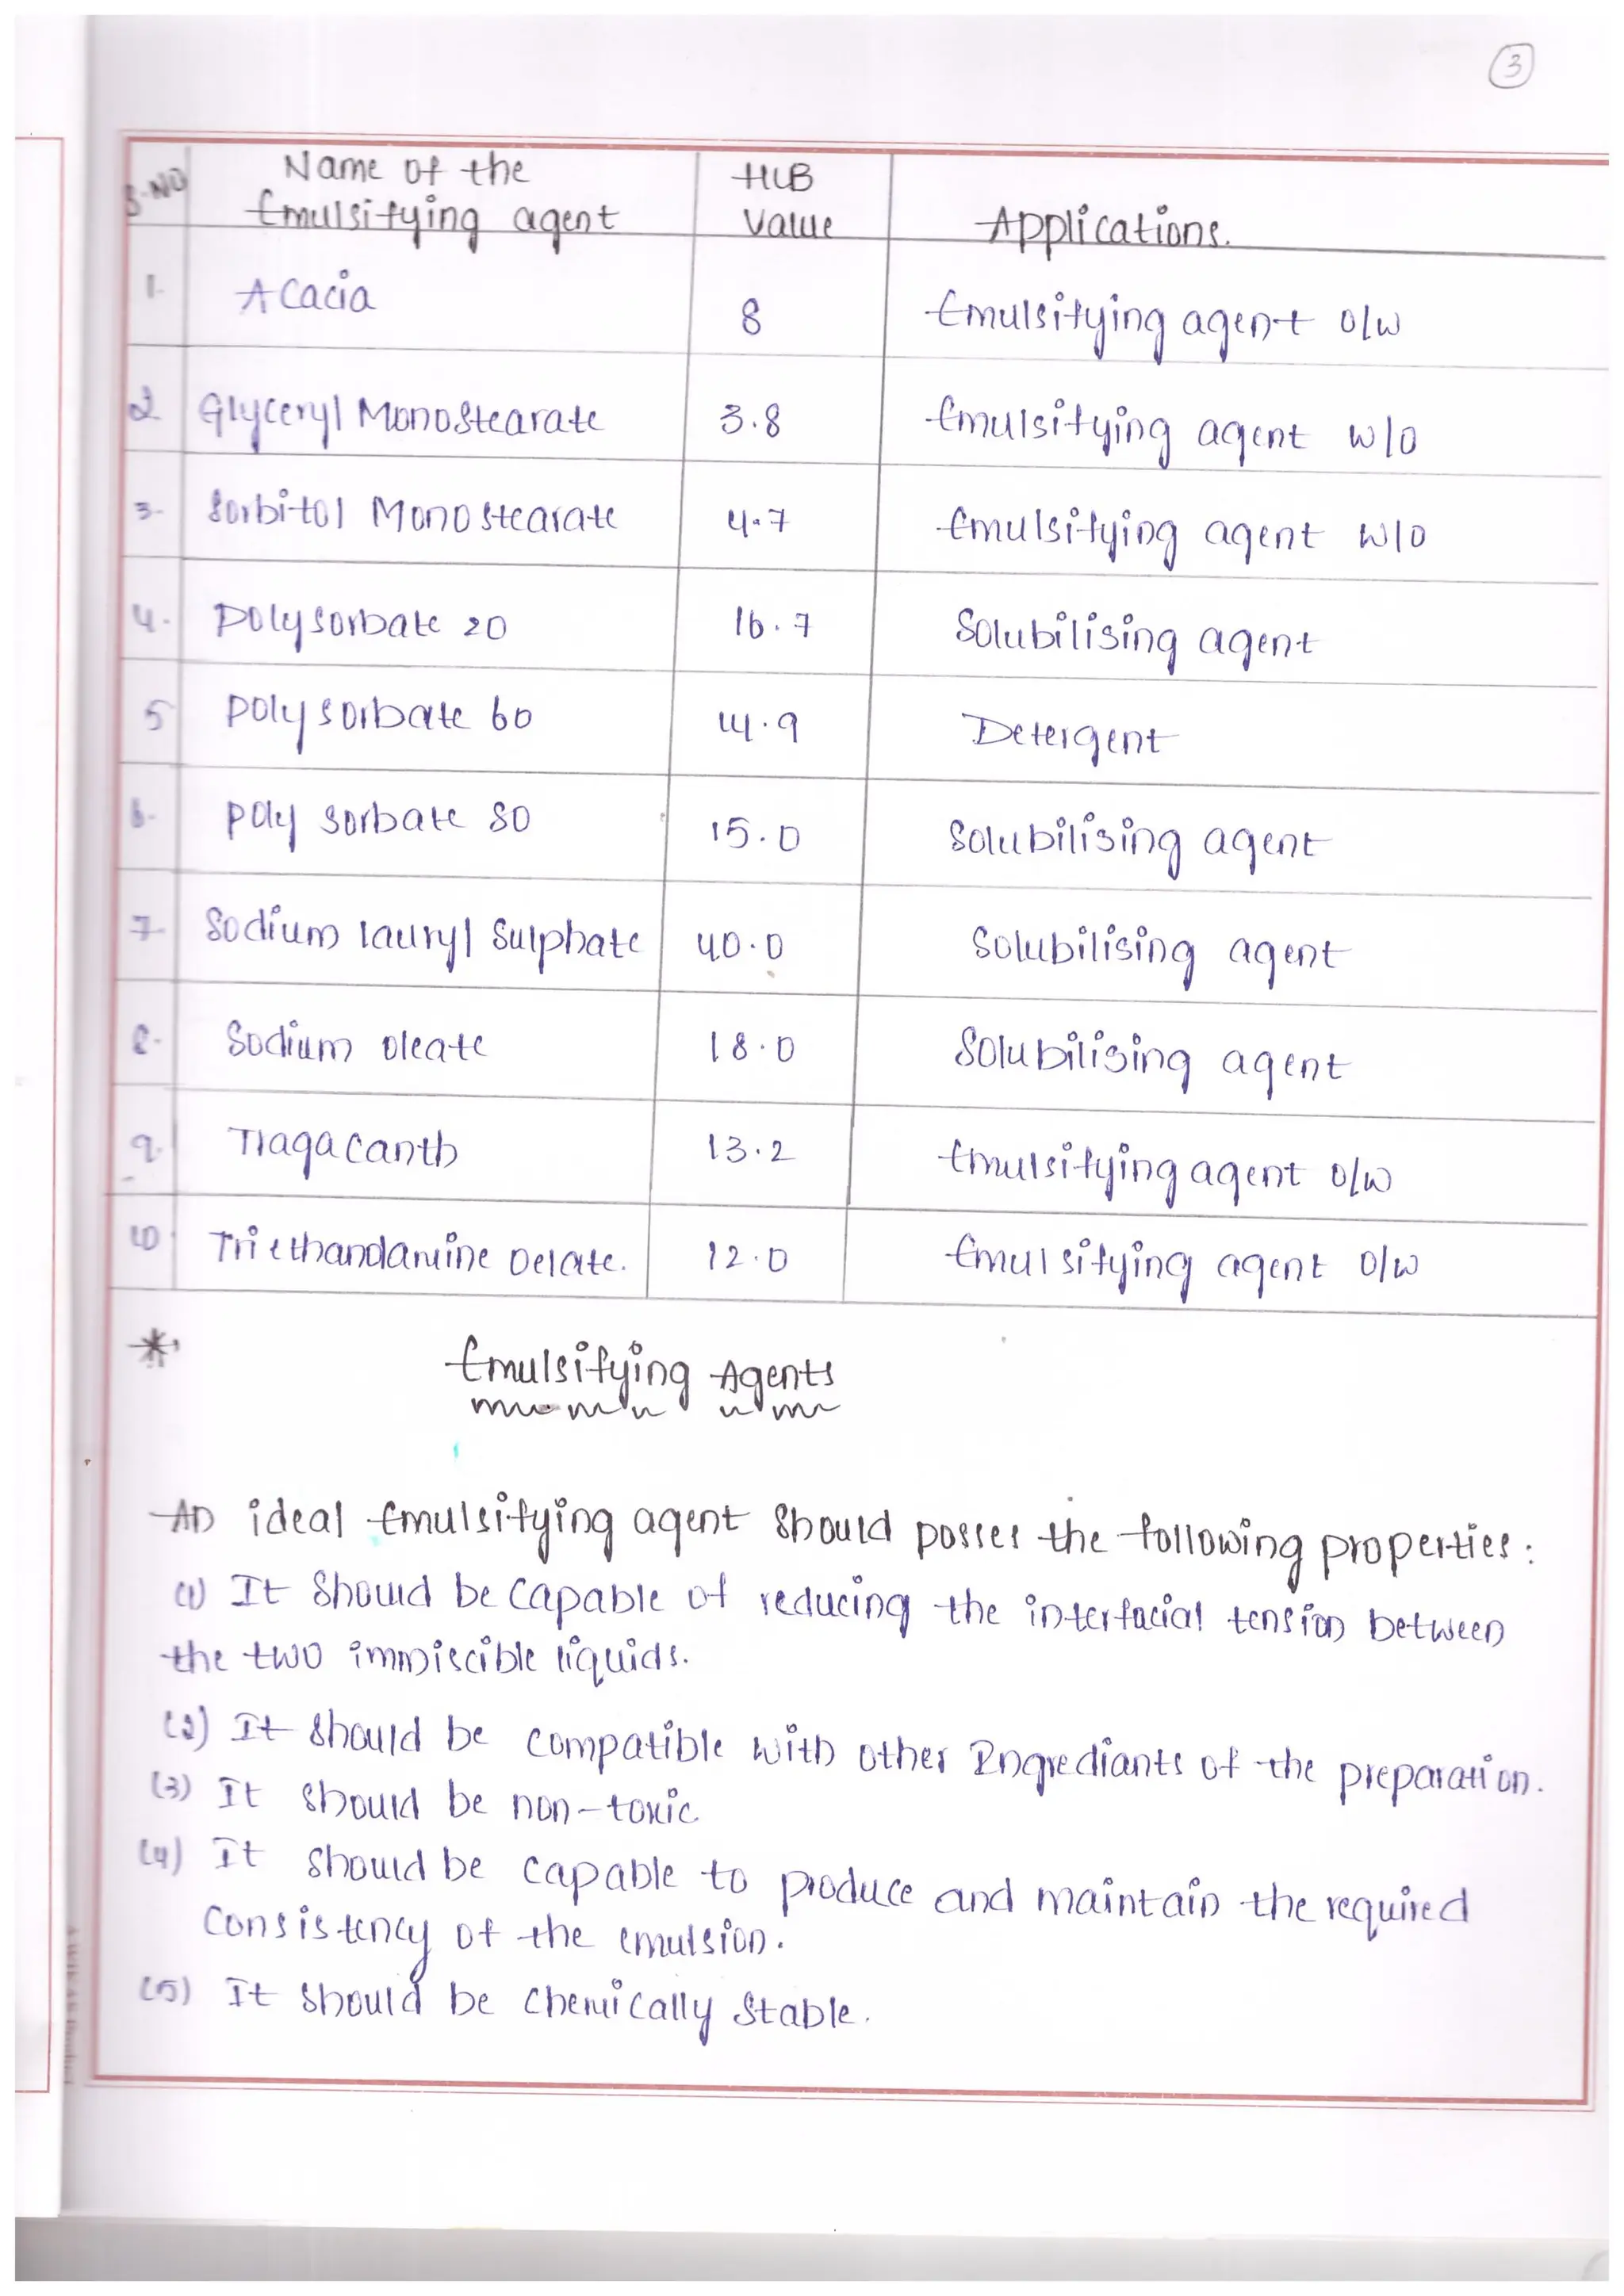 3
S.NO Name of the Emulsifying agent HLB Value Applications.
1. Acacia 8 Emulsifying agent o/w
2 Glyceryl Monostearate 3.8 Emulsifying agent w/o
3. Sorbitol Monostearate 4.7 Emulsifying agent w/o
4. Polysorbate 20 16.7 Solubilising agent
5 Polysorbate 60 14.9 Detergent
6. Poly sorbate 80 15.0 Solubilising agent
7. Sodium lauryl Sulphate 40.0 Solubilising agent
8. Sodium oleate 18.0 Solubilising agent
9. Tragacanth 13.2 Emulsifying agent o/w
10. Triethandamine Oelate. 12.0 Emulsifying agent o/w
* Emulsifying Agents
An ideal Emulsifying agent should posses the following properties:
(1) It Should be capable of reducing the interfacial tension between
the two immiscible liquids.
(2) It should be compatible with other Ingrediants of the preparation.
(3) It should be non-toxic
(4) It should be capable to produce and maintain the required
Consistency of the emulsion.
(5) It should be chemically Stable.